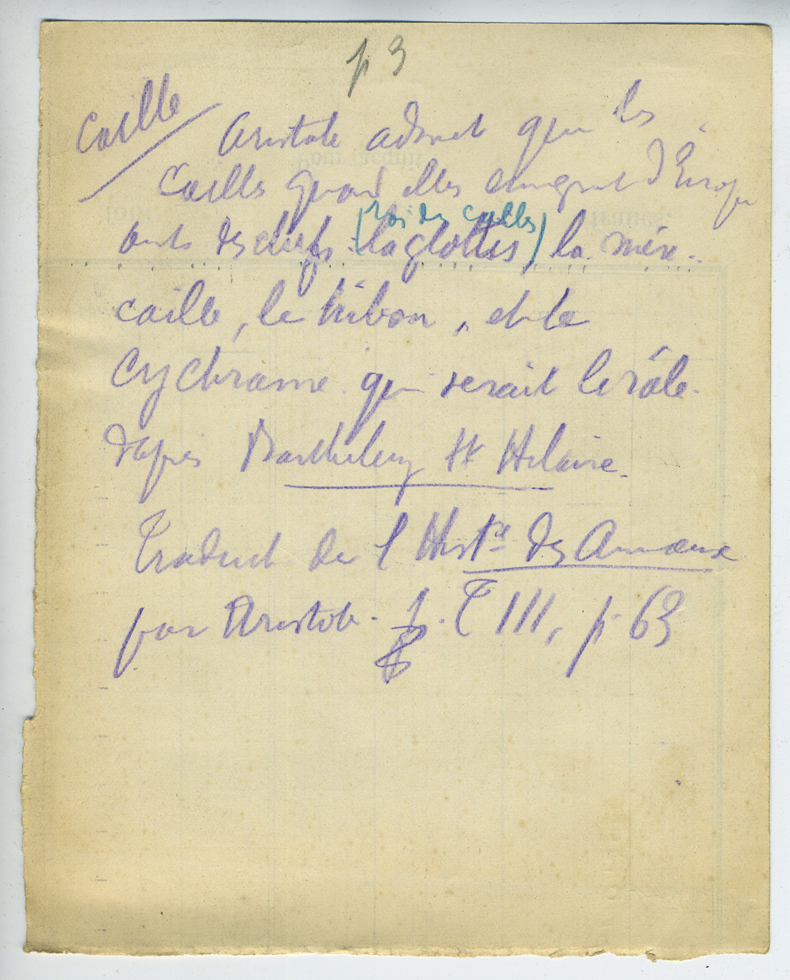 p 3
Caille
Aristote admet que les
Cailles quand elles émigrent d'Europe
ont des chefs. (roi des cailles)
la glottis, la mère.
caille, le hibou, et le
Cychrame qui serait le râle.
d'apres Barthelemy St Hilaire.
Traduct de l'Histre des Animaux
par Aristote. T III, p 63